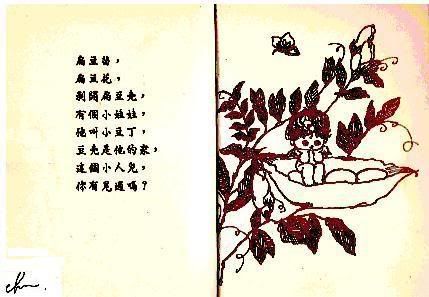 扁豆藤，
扁豆花，
剝開扁豆壳，
有個小娃娃，
他叫小豆丁，
豆壳是他的家，
這個小人兒，
你有見過嗎？